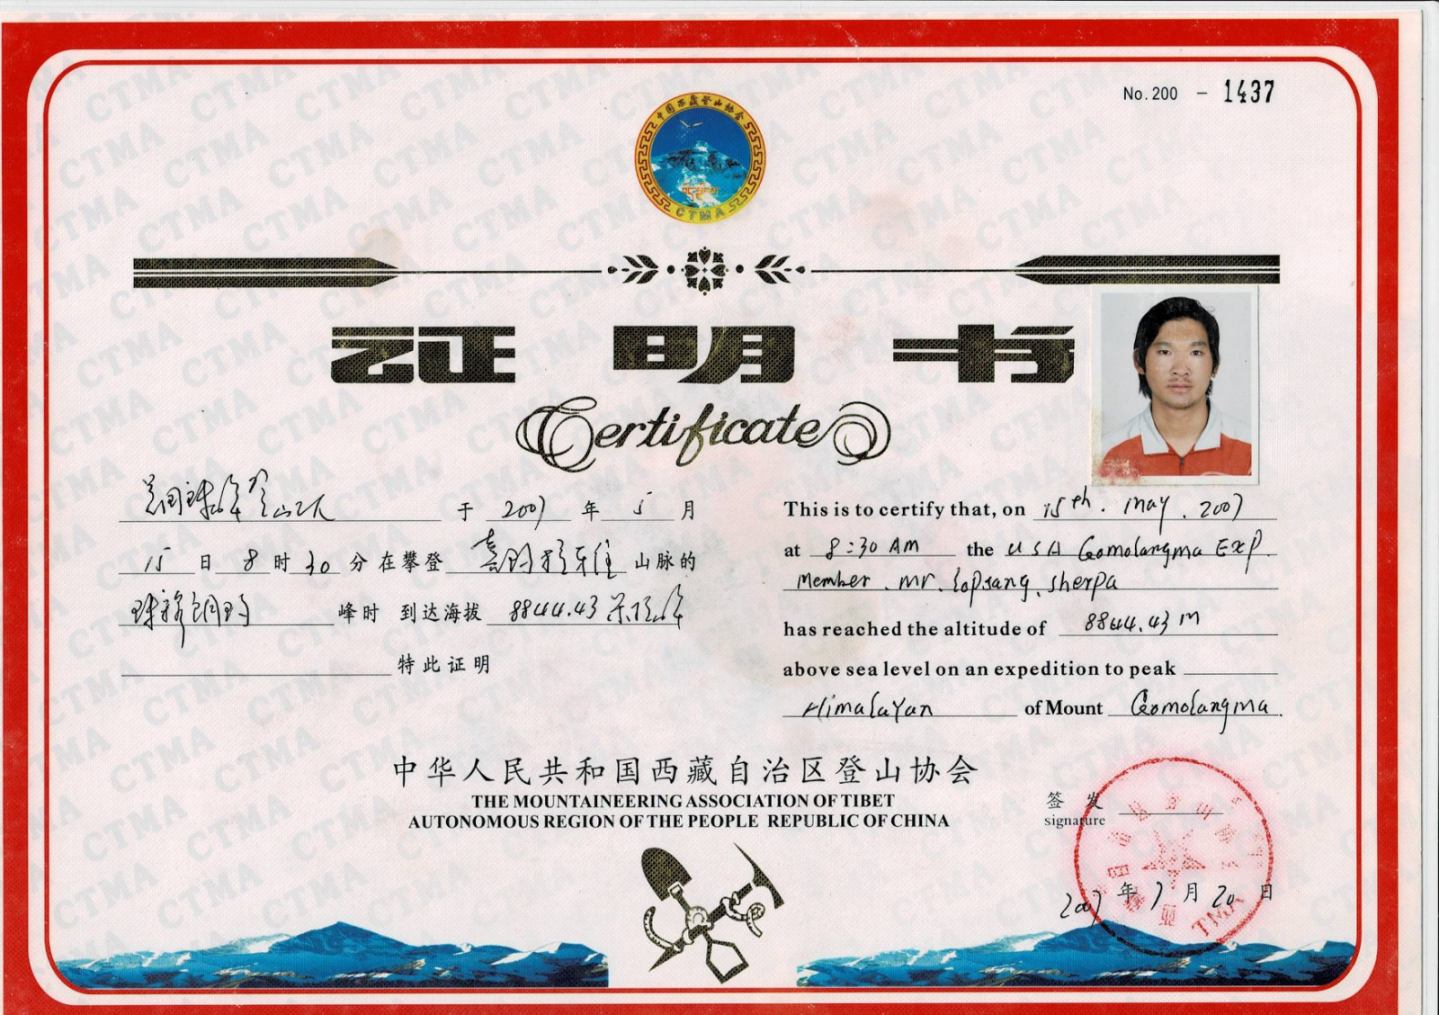 No.200 - 1437
中国西藏登山协会
CTMA
证明书
Certificate
于 2007 年 5 月
15 日 8 时 30 分 在攀登 山脉的
峰时 到达海拔 8844.43
特此证明
This is to certify that, on 15th. may. 2007
at 8:30 AM the USA Gomolangma Exp.
Member. mr. lopsang. sherpa
has reached the altitude of 8844.43 m
above sea level on an expedition to peak
Himalayan of Mount Gomolangma.
中华人民共和国西藏自治区登山协会
THE MOUNTAINEERING ASSOCIATION OF TIBET
AUTONOMOUS REGION OF THE PEOPLE REPUBLIC OF CHINA
签发
signature
2007 年 7 月 20 日
TMA